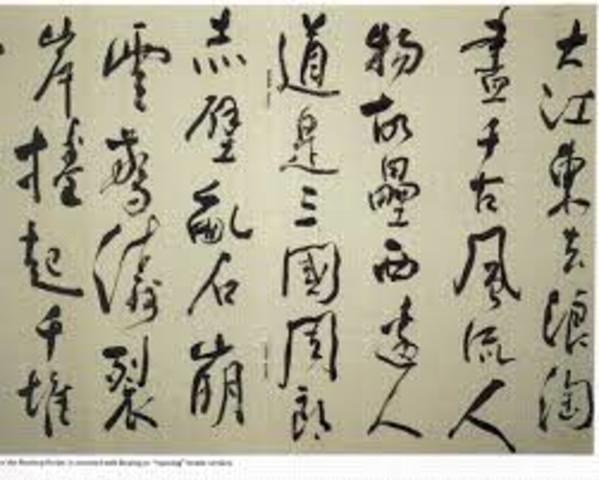 大江東去浪淘
盡千古風流人
物故壘西邊人
道是三國周郎
赤壁亂石崩
雲驚濤裂
岸捲起千堆